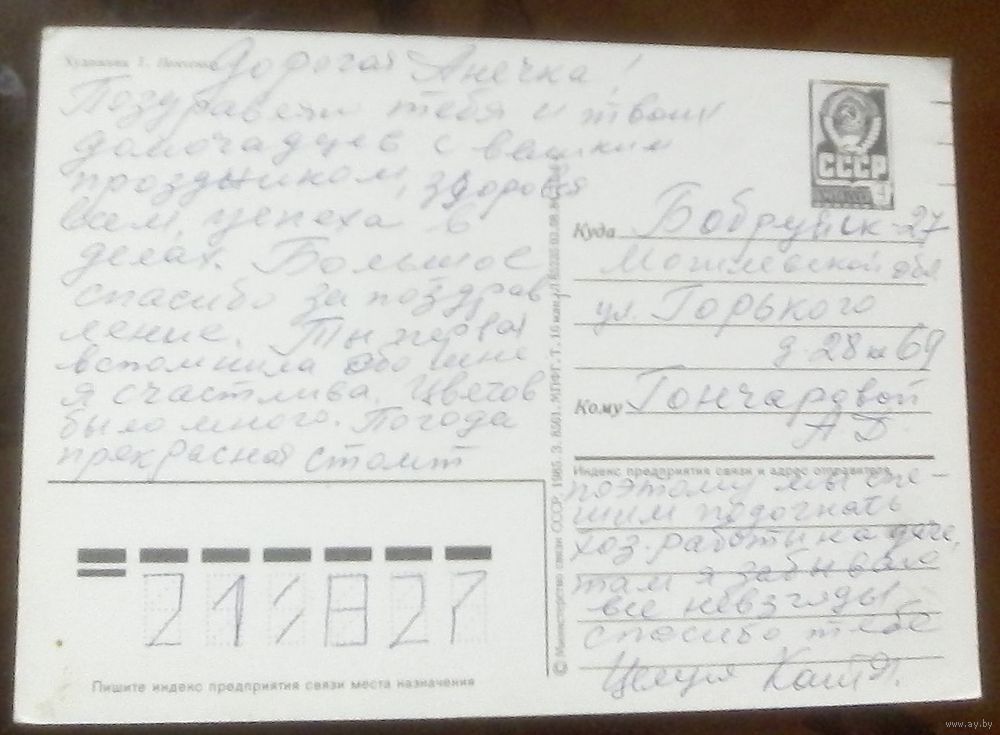 Художник Т.
Дорогая Анечка!
Поздравляю тебя и твоих
домочадцев с вашким
проздником, здоровья
всем, успеха в
делах. Большое
спасибо за поздрав
ление. Ты первая
вспомнила обо мне
я счастлива. Цветов
было много. Погода
прекрасная стоит
СССР
Куда Бобруйск-27
Могилевской обл
ул. Горького
д. 28 кв 69
Кому Гончаровой
А Д
Индекс предприятия связи и адрес отправителя
поэтому мы спе-
шим подогнать
хоз. работы на даче,
там я забываю
все невзгоды,
спасибо тебе
Целую Катя.
© Министерство связи СССР. 1985. З.
213827
Пишите индекс предприятия связи места назначения
www.ay.by